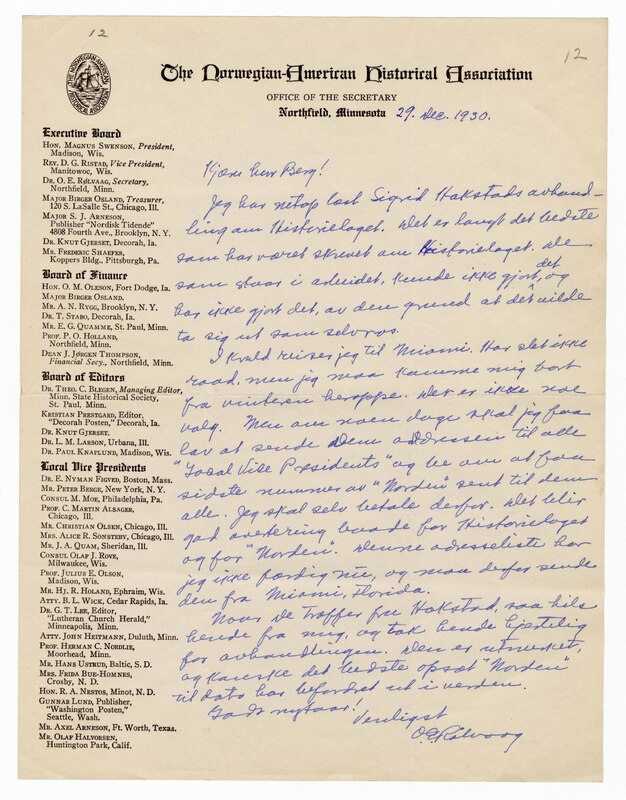 12
12
The Norwegian-American Historical Association
OFFICE OF THE SECRETARY
Northfield, Minnesota 29. Dec. 1930.
THE NORWEGIAN AMERICAN HISTORICAL ASSOCIATION
Executive Board
HON. MAGNUS SWENSON, President,
Madison, Wis.
REV. D. G. RISTAD, Vice President,
Manitowoc, Wis.
DR. O. E. RØLVAAG, Secretary,
Northfield, Minn.
MAJOR BIRGER OSLAND, Treasurer,
120 S. LaSalle St., Chicago, Ill.
MAJOR S. J. ARNESON,
Publisher "Nordisk Tidende"
4808 Fourth Ave., Brooklyn, N. Y.
DR. KNUT GJERSET, Decorah, Ia.
MR. FREDERIC SCHAEFER,
Koppers Bldg., Pittsburgh, Pa.
Board of Finance
HON. O. M. OLESON, Fort Dodge, Ia.
MAJOR BIRGER OSLAND.
MR. A. N. RYGG, Brooklyn, N. Y.
DR. T. STABO, Decorah, Ia.
MR. E. G. QUAMME, St. Paul, Minn.
PROF. P. O. HOLLAND,
Northfield, Minn.
DEAN J. JØRGEN THOMPSON,
Financial Secy., Northfield, Minn.
Board of Editors
DR. THEO. C. BLEGEN, Managing Editor,
Minn. State Historical Society,
St. Paul, Minn.
KRISTIAN PRESTGARD, Editor,
"Decorah Posten," Decorah, Ia.
DR. KNUT GJERSET.
DR. L. M. LARSON, Urbana, Ill.
DR. PAUL KNAPLUND, Madison, Wis.
Local Vice Presidents
DR. E. NYMAN FIGVED, Boston, Mass.
MR. PETER BERGE, New York, N. Y.
CONSUL M. MOE, Philadelphia, Pa.
PROF. C. MARTIN ALSAGER,
Chicago, Ill.
MR. CHRISTIAN OLSEN, Chicago, Ill.
MRS. ALICE R. SONSTEBY, Chicago, Ill.
MR. J. A. QUAM, Sheridan, Ill.
CONSUL OLAF J. ROVE,
Milwaukee, Wis.
PROF. JULIUS E. OLSON,
Madison, Wis.
MR. HJ. R. HOLAND, Ephraim, Wis.
ATTY. B. L. WICK, Cedar Rapids, Ia.
DR. G. T. LEE, Editor,
"Lutheran Church Herald,"
Minneapolis, Minn.
ATTY. JOHN HEITMANN, Duluth, Minn.
PROF. HERMAN C. NORDLIE,
Moorhead, Minn.
MR. HANS USTRUD, Baltic, S. D.
MRS. FRIDA BUE-HOMNES,
Crosby, N. D.
HON. R. A. NESTOS, Minot, N. D.
GUNNAR LUND, Publisher,
"Washington Posten,"
Seattle, Wash.
MR. AXEL ARNESON, Ft. Worth, Texas.
MR. OLAF HALVORSEN,
Huntington Park, Calif.
Kjære herr Berg!
Jeg har netop læst Sigrid Hakstads avhand-
ling om Historielaget. Det er langt det bedste
som har været skrevet om Historielaget. De
som staar i arbeidet, kunde ikke gjort det, og
har ikke gjort det, av den grund at det vilde
ta sig ut som selvros.
I kveld reiser jeg til Miami. Har slet ikke
raad, men jeg maa komme mig bort
fra vinteren heroppe. Det er ikke noe
valg. Men om noen dage skal jeg faa
lov at sende Dem adressen til alle
"Local Vice Presidents" og be om at faa
sidste nummer av "Norden" sent til dem
alle. Jeg skal selv betale derfor. Det blir
god avertering baade for Historielaget
og for "Norden". Denne adresseliste har
jeg ikke færdig nu, og maa derfor sende
den fra Miami, Florida.
Naar De træffer frk Hakstad, saa hils
hende fra mig, og tak hende hjertelig
for avhandlingen. Den er utmerket,
og kanske det bedste opsæt "Norden"
til dato har befordret ut i verden.
Godt nytaar!
Venligst
O. E. Rölvaag